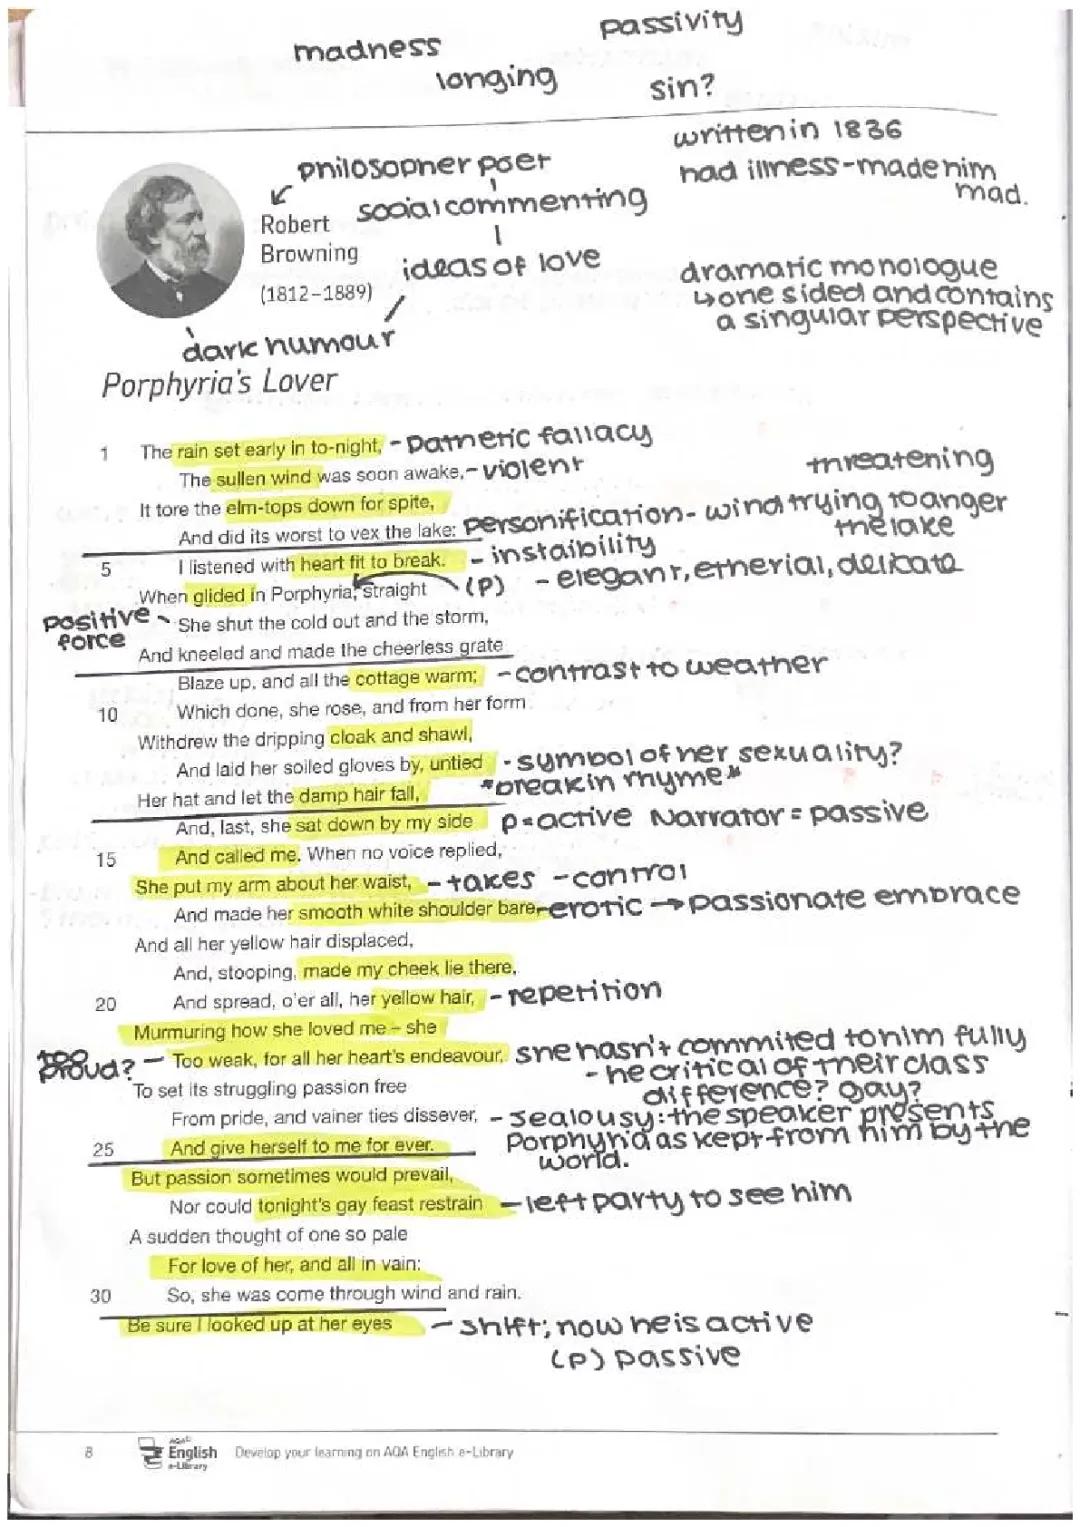 madness
passivity
longing
sin?
written in 1836
had illness-made him
mad.
philosopher poet
social commenting
ideas of love
dark humour
Robert
Browning
(1812–1889)
dramatic monologue
↳one sided and contains
a singular perspective
Porphyria's Lover
1 The rain set early in to-night, - Pathetic fallacy
The sullen wind was soon awake, - violent
threatening
It tore the elm-tops down for spite,
And did its worst to vex the lake: personification - wind trying to anger
the lake
5 I listened with heart fit to break. - instaibility
When glided in Porphyria; straight (P) - elegant, etherial, delicate
positive
force
She shut the cold out and the storm,
And kneeled and made the cheerless grate
Blaze up, and all the cottage warm; - contrast to weather
10 Which done, she rose, and from her form
Withdrew the dripping cloak and shawl,
And laid her soiled gloves by, untied - symbol of her sexuality?
*break in rhyme*
Her hat and let the damp hair fall,
And, last, she sat down by my side P=active Narrator = passive
15 And called me. When no voice replied,
She put my arm about her waist, - takes - control
And made her smooth white shoulder bare, - erotic → passionate embrace
And all her yellow hair displaced,
And, stooping, made my cheek lie there,
20 And spread, o'er all, her yellow hair, - repetition
Murmuring how she loved me – she
too
proud? - Too weak, for all her heart's endeavour, she hasn't commited to him fully
- he critical of their class
difference? gay?
To set its struggling passion free
From pride, and vainer ties dissever, - Jealousy: the speaker presents
Porphyria as kept from him by the
world.
25 And give herself to me for ever.
But passion sometimes would prevail,
Nor could tonight's gay feast restrain - left party to see him
A sudden thought of one so pale
For love of her, and all in vain:
30 So, she was come through wind and rain.
Be sure I looked up at her eyes - shift; now he is active
(P) passive
8 AQA English e-Library Develop your learning on AQA English e-Library